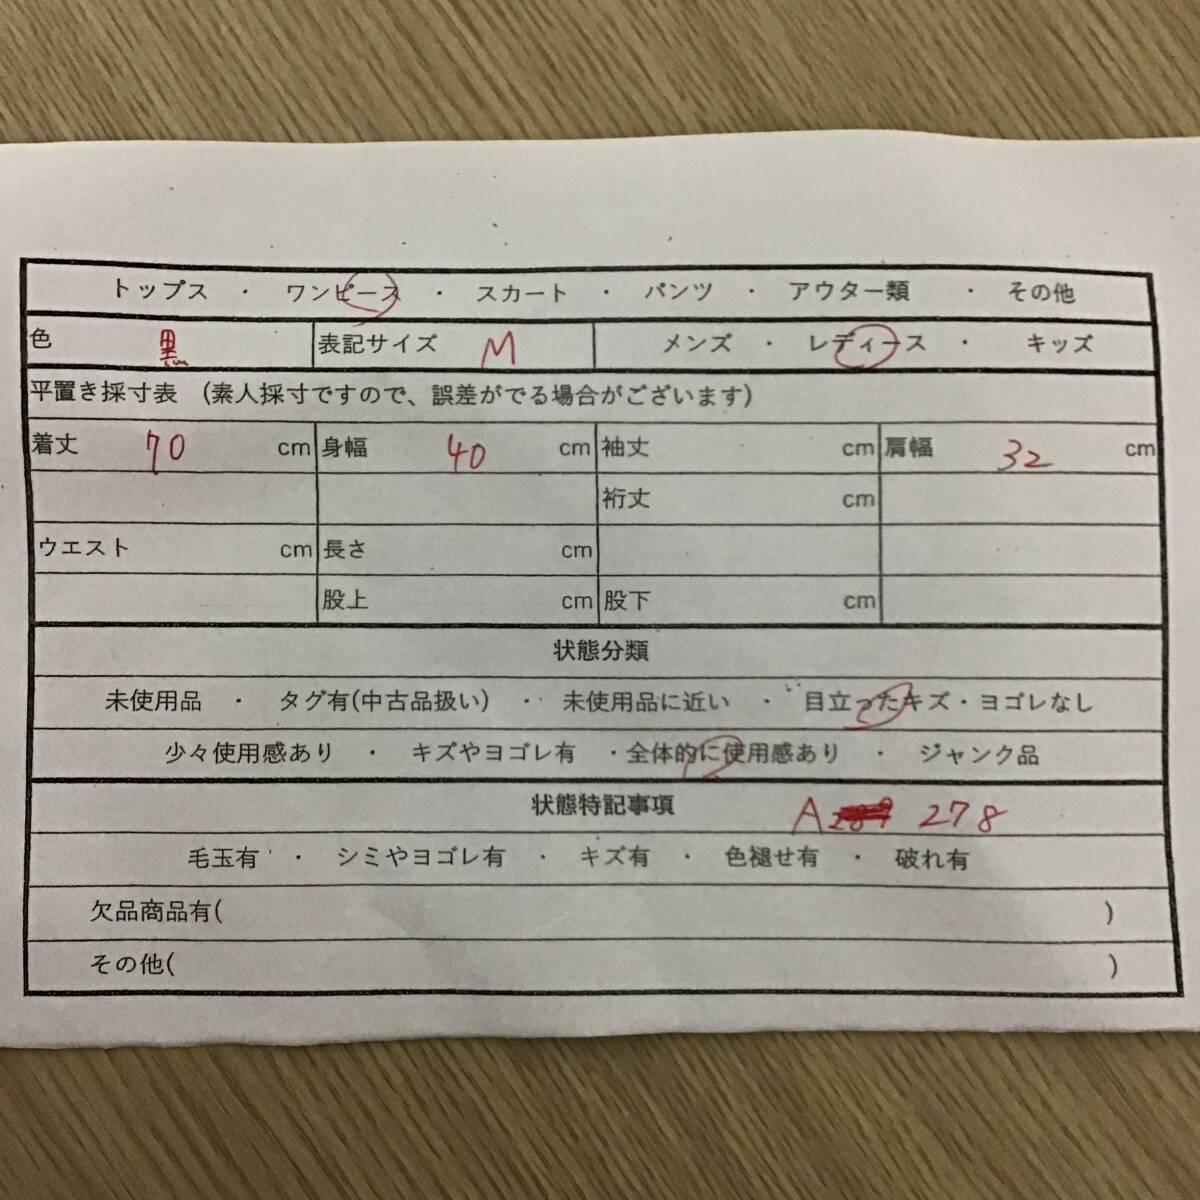 トップス ・ ワンピース ・ スカート ・ パンツ ・ アウター類 ・ その他
色 黒 表記サイズ M メンズ ・ レディース ・ キッズ
平置き採寸表 (素人採寸ですので、誤差がでる場合がございます)
着丈 70 cm 身幅 40 cm 袖丈 cm 肩幅 32 cm
裄丈 cm
ウエスト cm 長さ cm
股上 cm 股下 cm
状態分類
未使用品 ・ タグ有(中古品扱い) ・ 未使用品に近い ・ 目立ったキズ・ヨゴレなし
少々使用感あり ・ キズやヨゴレ有 ・全体的に使用感あり ・ ジャンク品
状態特記事項 A 278
毛玉有 ・ シミやヨゴレ有 ・ キズ有 ・ 色褪せ有 ・ 破れ有
欠品商品有( )
その他( )